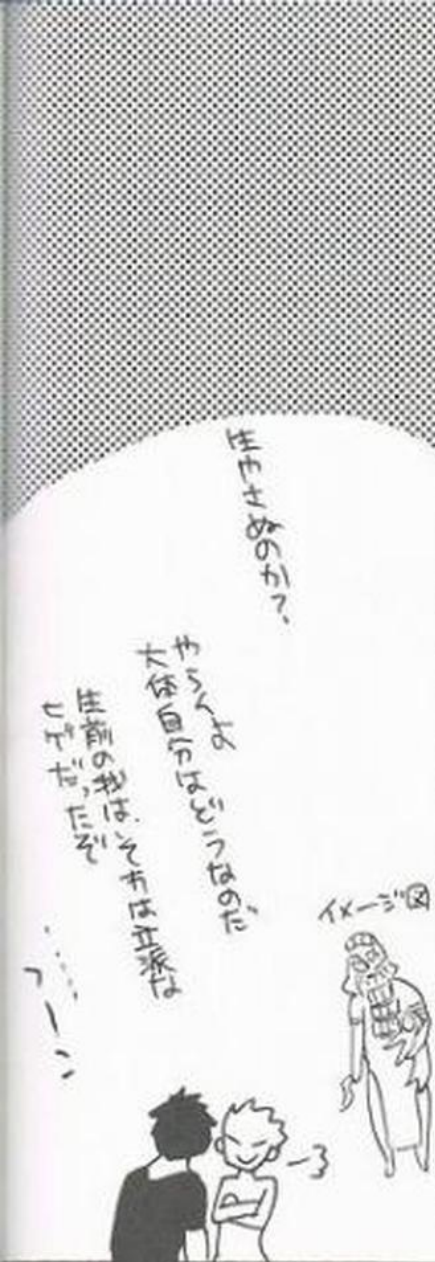 生やさぬのか？
やらんよ
大体自分はどうなのだ
生前の我は、そオは立派な
ヒゲだったぞ
・・・・・
ふーン
イメージ図